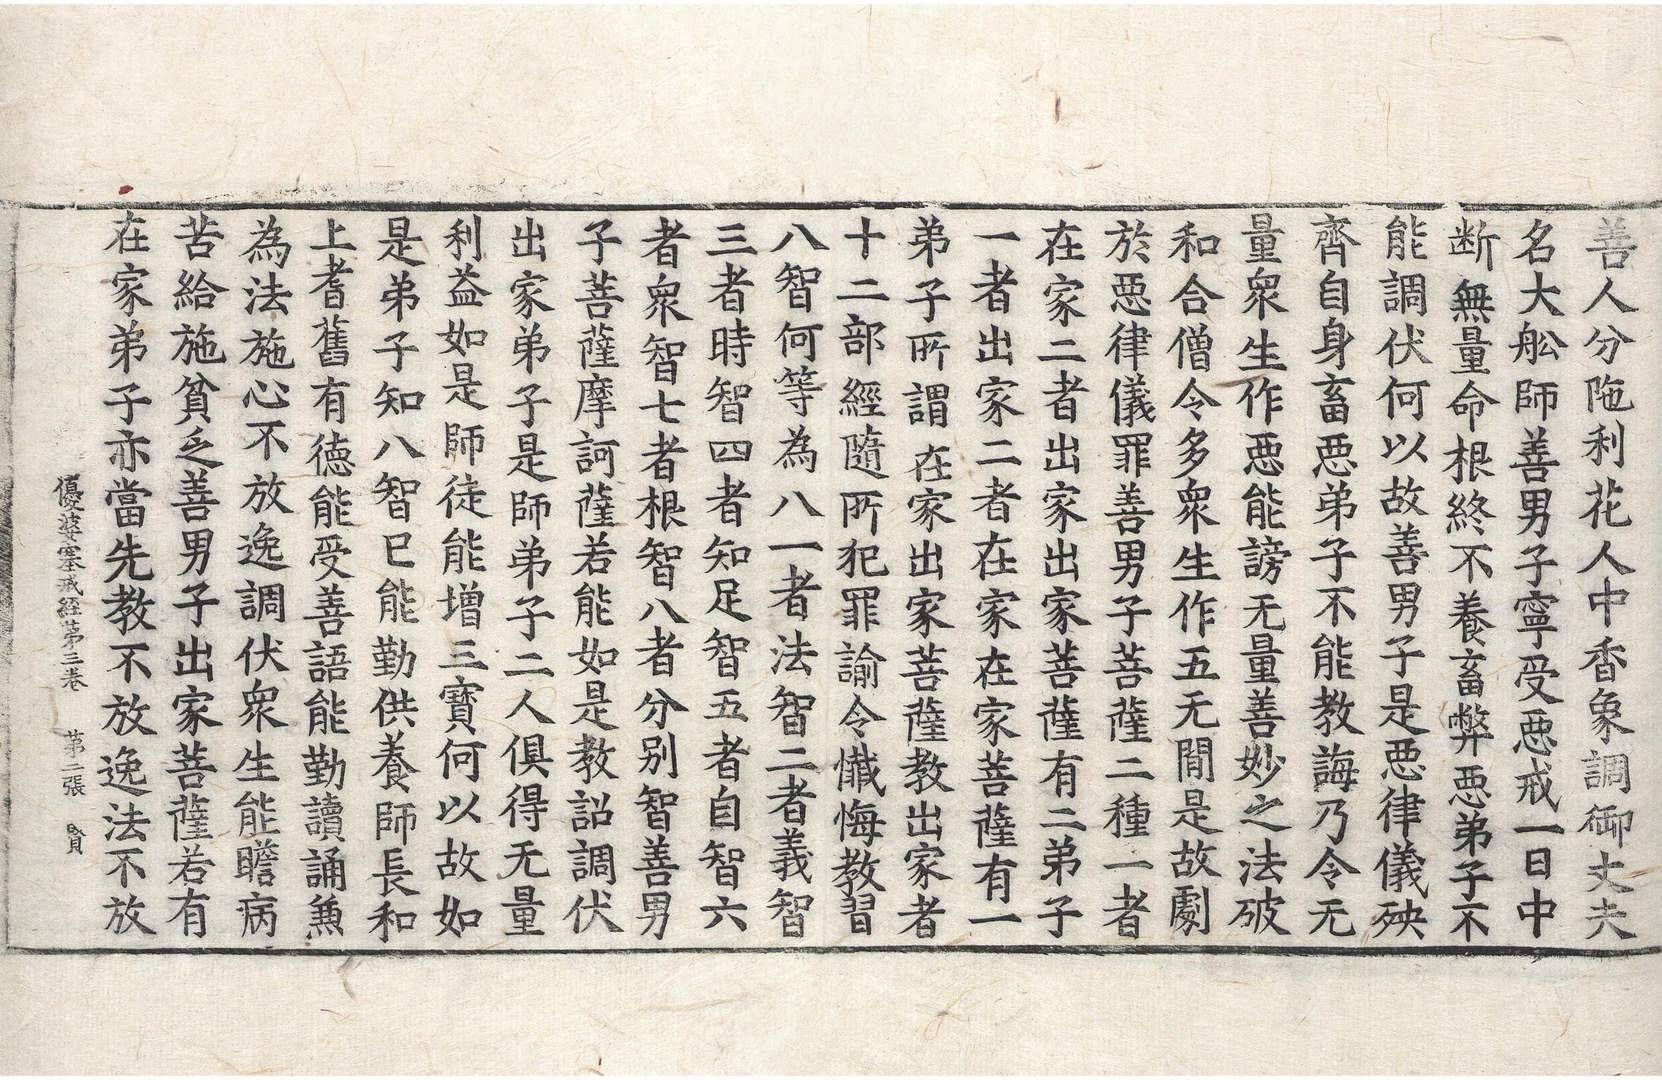 善人分陁利花人中香象調御丈夫
名大舩師善男子寧受惡戒一日中
断無量命根終不養畜弊惡弟子不
能調伏何以故善男子是惡律儀殃
齊自身畜惡弟子不能教誨乃令无
量衆生作惡能謗无量善妙之法破
和合僧令多衆生作五无閒是故劇
於惡律儀罪善男子菩薩二種一者
在家二者出家出家菩薩有二弟子
一者出家二者在家在家菩薩有一
弟子所謂在家出家菩薩教出家者
十二部經隨所犯罪諭令懺悔教習
八智何等為八一者法智二者義智
三者時智四者知足智五者自智六
者衆智七者根智八者分别智善男
子菩薩摩訶薩若能如是教詔調伏
出家弟子是師弟子二人俱得无量
利益如是師徒能增三寶何以故如
是弟子知八智已能勤供養師長和
上耆舊有德能受善語能勤讀誦兼
為法施心不放逸調伏衆生能瞻病
苦給施貧乏善男子出家菩薩若有
在家弟子亦當先教不放逸法不放
優婆塞戒經第三卷 第二張 賢